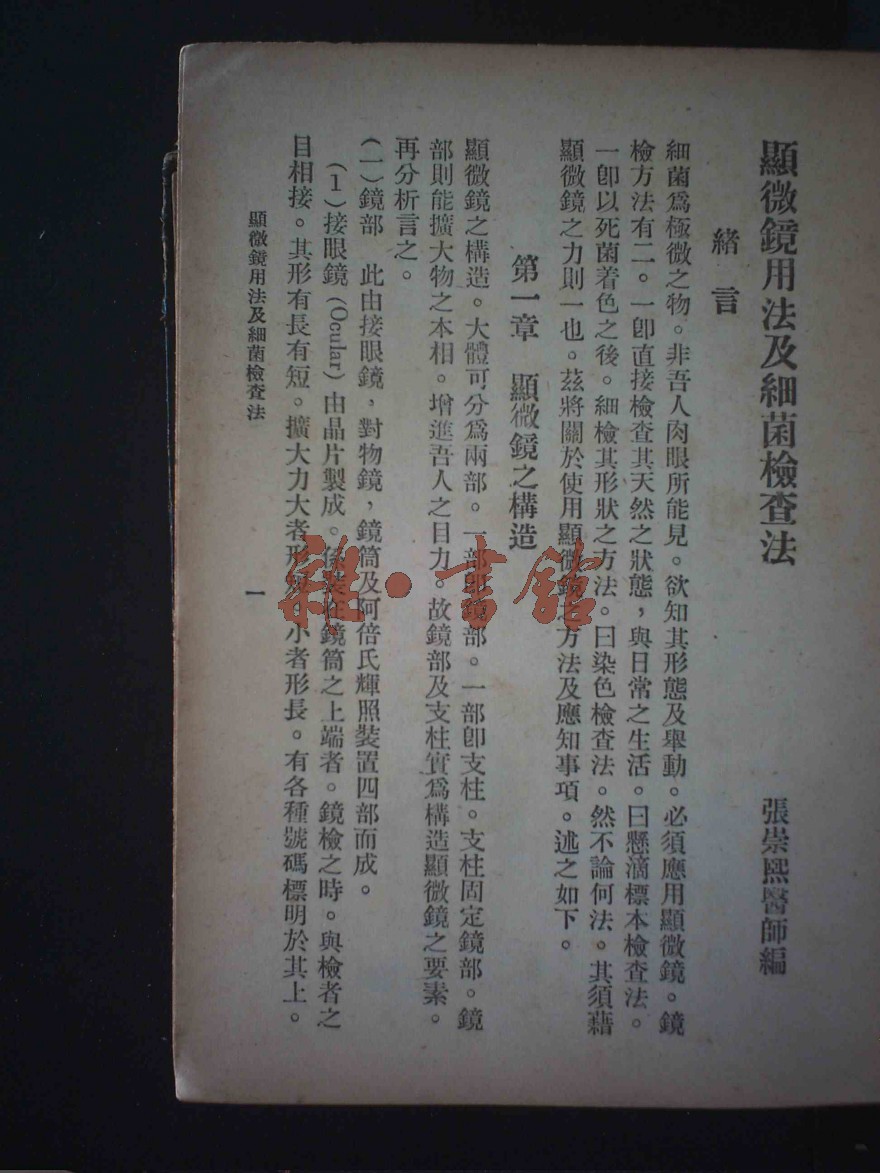 顯微鏡用法及細菌檢查法
張崇熙醫師編
緒言
細菌爲極微之物。非吾人肉眼所能見。欲知其形態及舉動。必須應用顯微鏡。鏡
檢方法有二。一卽直接檢查其天然之狀態，與日常之生活。曰懸滴標本檢查法。
一卽以死菌着色之後。細檢其形狀之方法。曰染色檢查法。然不論何法。其須藉
顯微鏡之力則一也。茲將關於使用顯微鏡之方法及應知事項。述之如下。
第一章 顯微鏡之構造
顯微鏡之構造。大體可分爲兩部。一部卽鏡部。一部卽支柱。支柱固定鏡部。鏡
部則能擴大物之本相。增進吾人之目力。故鏡部及支柱實爲構造顯微鏡之要素。
再分析言之。
(一)鏡部 此由接眼鏡，對物鏡，鏡筒及阿倍氏輝照裝置四部而成。
(1)接眼鏡(Ocular)由晶片製成。係裝在鏡筒之上端者。鏡檢之時。與檢者之
目相接。其形有長有短。擴大力大者形小者形長。有各種號碼標明於其上。
顯微鏡用法及細菌檢查法
一
雜·書館